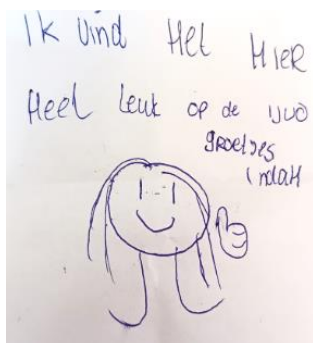 Ik vind Het HIER
Heel leuk op de IJVO
groetjes
indaH